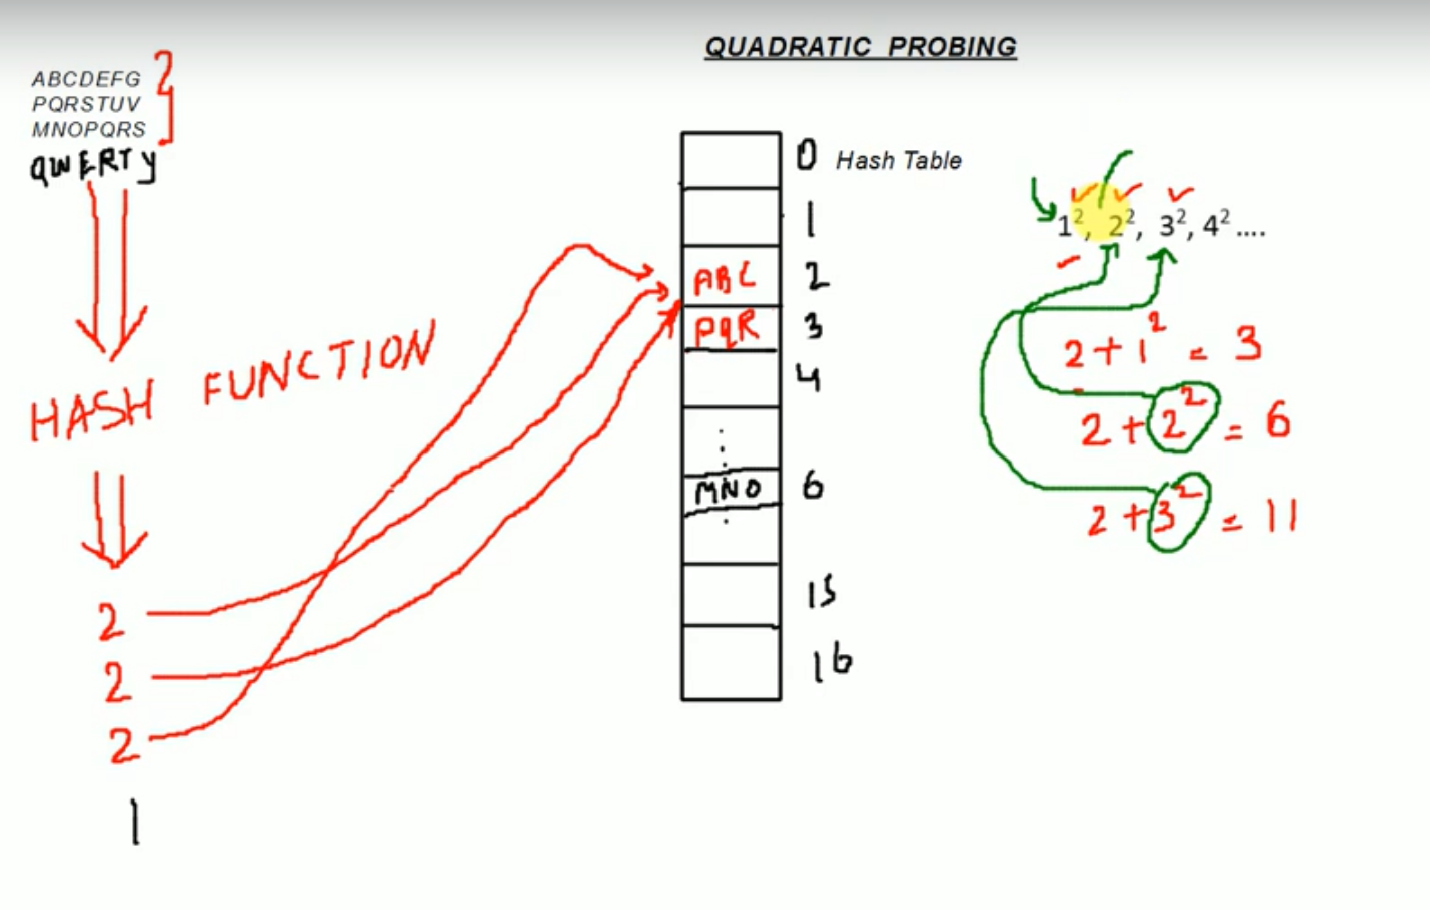 QUADRATIC PROBING
ABCDEFG
PQRSTUV
MNOPQRS
QWERTY
HASH FUNCTION
2
2
2
1
0 Hash Table
1
ABC 2
PQR 3
4
MNO 6
15
16
1², 2², 3², 4² ....
2+1² = 3
2+2² = 6
2+3² = 11